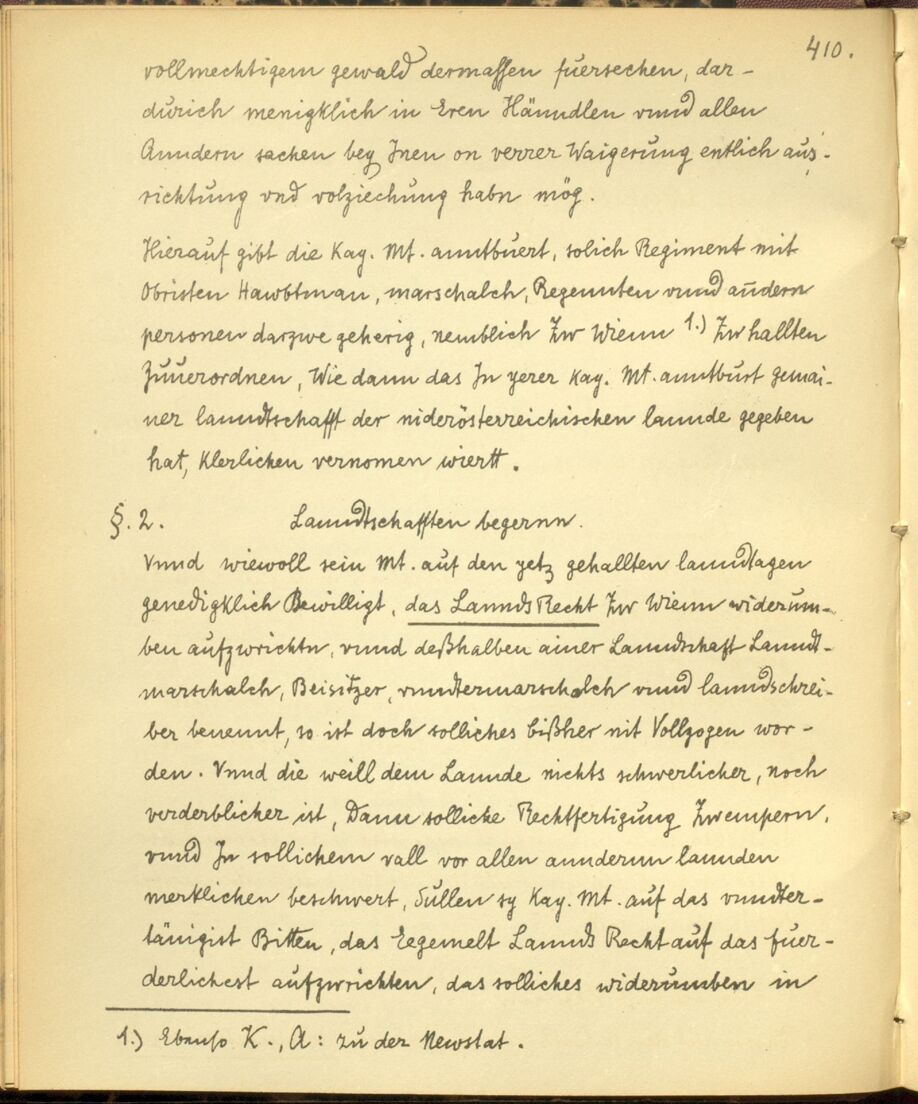 410.
vollmechtigem gewald dermassen fuersechen, dar-
durich menigklich in Eren Hänndlen vnnd allen
Anndern sachen bey Jnen on verrer Waigerung entlich aus-
richtung vnd volziechung habn mög.
Hierauf gibt die Kay. Mt. anntbuert, solich Regiment mit
Obristen Hawbtman, marschalch, Regennten vnnd anndern
personen darzwe geherig, nemblich Zw Wienn 1.) Zw hallten
Zuuerordnen, Wie dann das Jn yerer Kay. Mt. anntburt gemai-
ner lanndtschafft der niderösterreichischen lannde gegeben
hat, Klerlichen vernomen wiertt.
§. 2. Lanndtschafften begernn.
Vnnd wiewoll sein Mt. auf den yetz gehallten lanndtagen
genedigklich Bewilligt, das Lannds Recht Zw Wienn widerum-
ben aufzwrichtn, vnnd deßhalben ainer Lanndschaft Lanndt-
marschalch, Beisitzer, vnndtermarschalch vnnd lanndschrei-
ber benennt, so ist doch solliches bißher nit Vollzogen wor-
den. Vnnd die weill dem Lannde nichts schwerlicher, noch
verderblicher ist, Dann solliche Rechtfertigung Zwempern,
vnnd Jn sollichem vall vor allen anndernn lannden
merklichen beschwert, Sullen sy Kay. Mt. auf das vnndter-
tänigist Bitten, das Eegemelt Lannds Recht auf das fuer-
derlichest aufzwrichten, das solliches widerumben in
1.) Ebenso K., A: zu der Newstat.